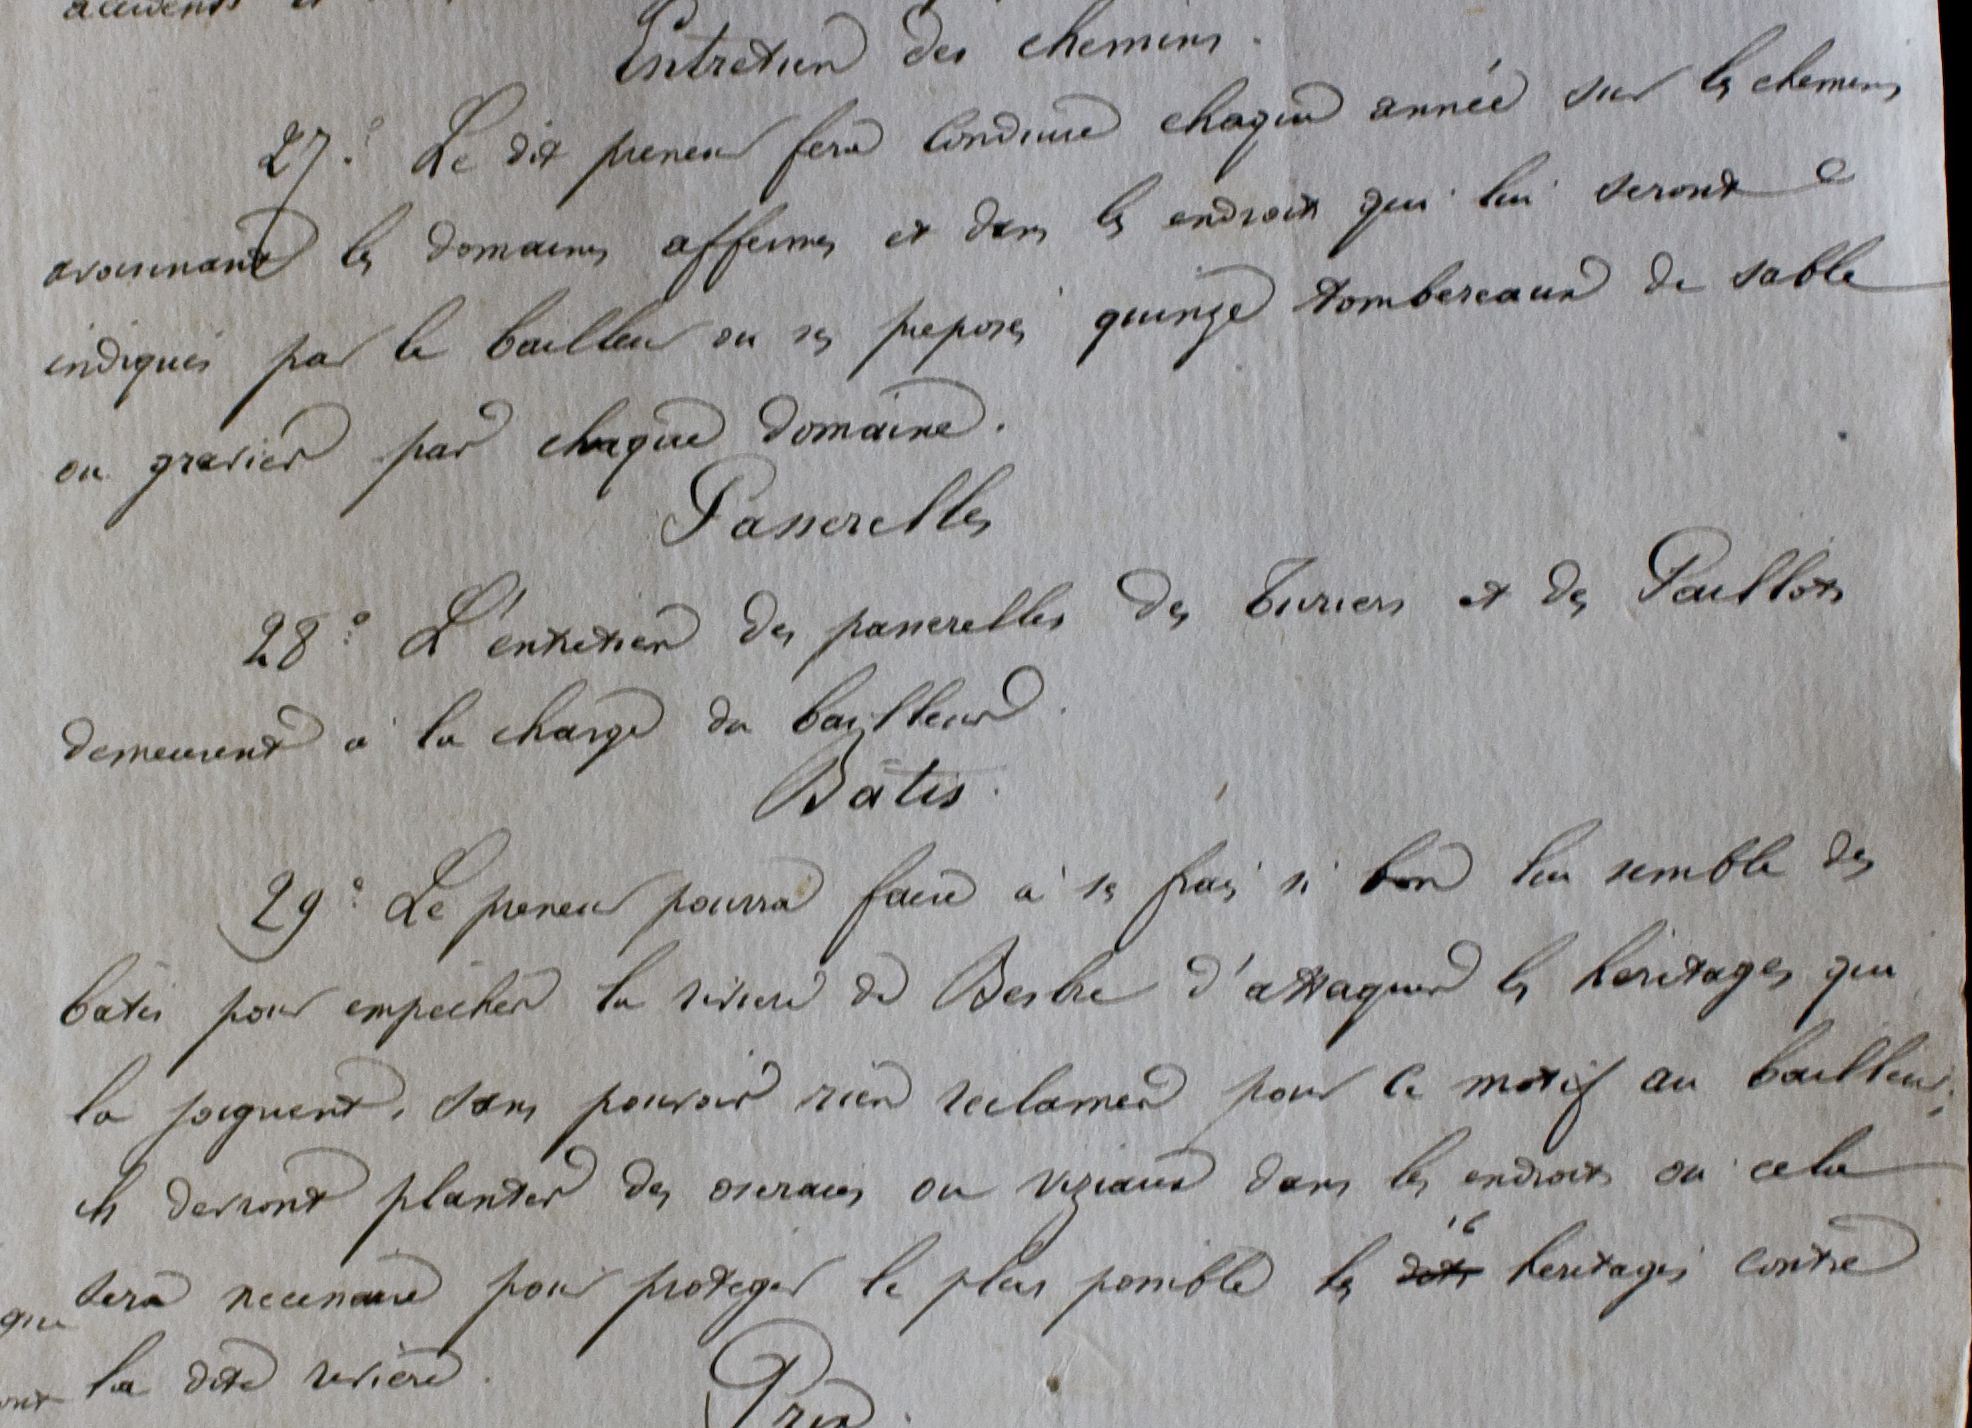 Entretien des chemins.
27.° Le dit preneur fera conduire chaque année sur les chemins
avoisinant les domaines affermes et dans les endroits qui lui seront
indiqués par le bailleur ou ses preposés quinze tombereaux de sable
ou gravier par chaque domaine.
Passerelles
28° L'entretien des passerelles des Turiers et des Paillots
demeurent à la charge du bailleur.
Bâtis.
29° Le preneur pourra faire à ses frais si bon leur semble des
batis pour empêcher la riviere de Besbre d'attaquer les heritages qui
la joignent, sans pouvoir rien reclamer pour ce motif au bailleur;
ils devront planter des oseraies ou viziaux dans les endroits ou cela
sera necessaire pour proteger le plus possible les dits heritages contre
la dite riviere.
Prix.